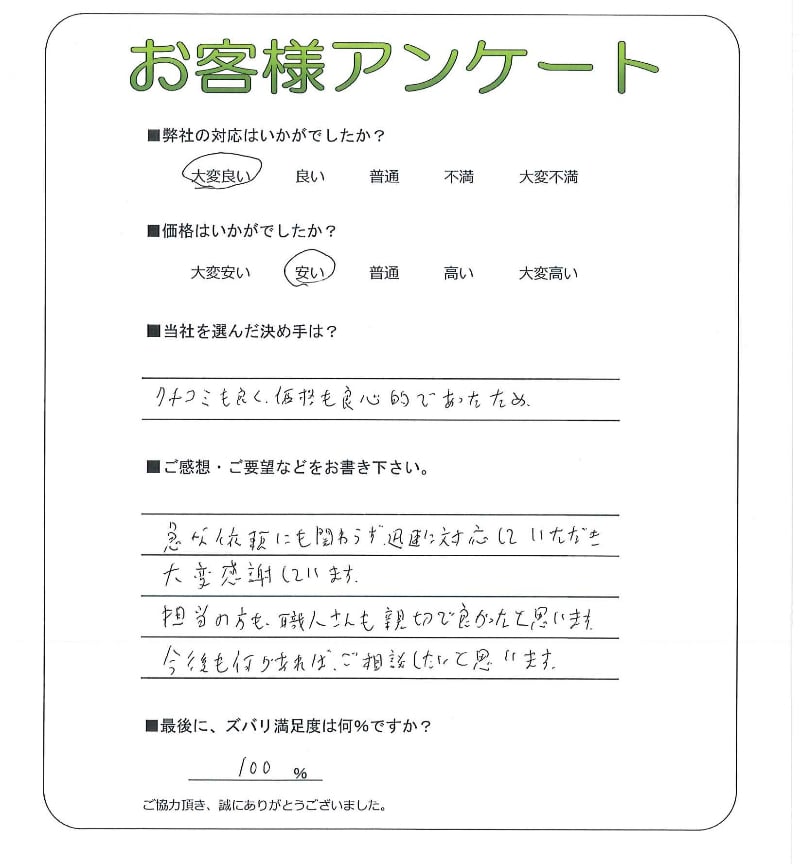 お客様アンケート
■弊社の対応はいかがでしたか？
大変良い 良い 普通 不満 大変不満
■価格はいかがでしたか？
大変安い 安い 普通 高い 大変高い
■当社を選んだ決め手は？
クチコミも良く、価格も良心的であったため、
■ご感想・ご要望などをお書き下さい。
急な依頼にも関わらず、迅速に対応していただき
大変感謝しています。
担当の方も、職人さんも親切で良かったと思います。
今後も何かあれば、ご相談したいと思います。
■最後に、ズバリ満足度は何%ですか？
100 %
ご協力頂き、誠にありがとうございました。